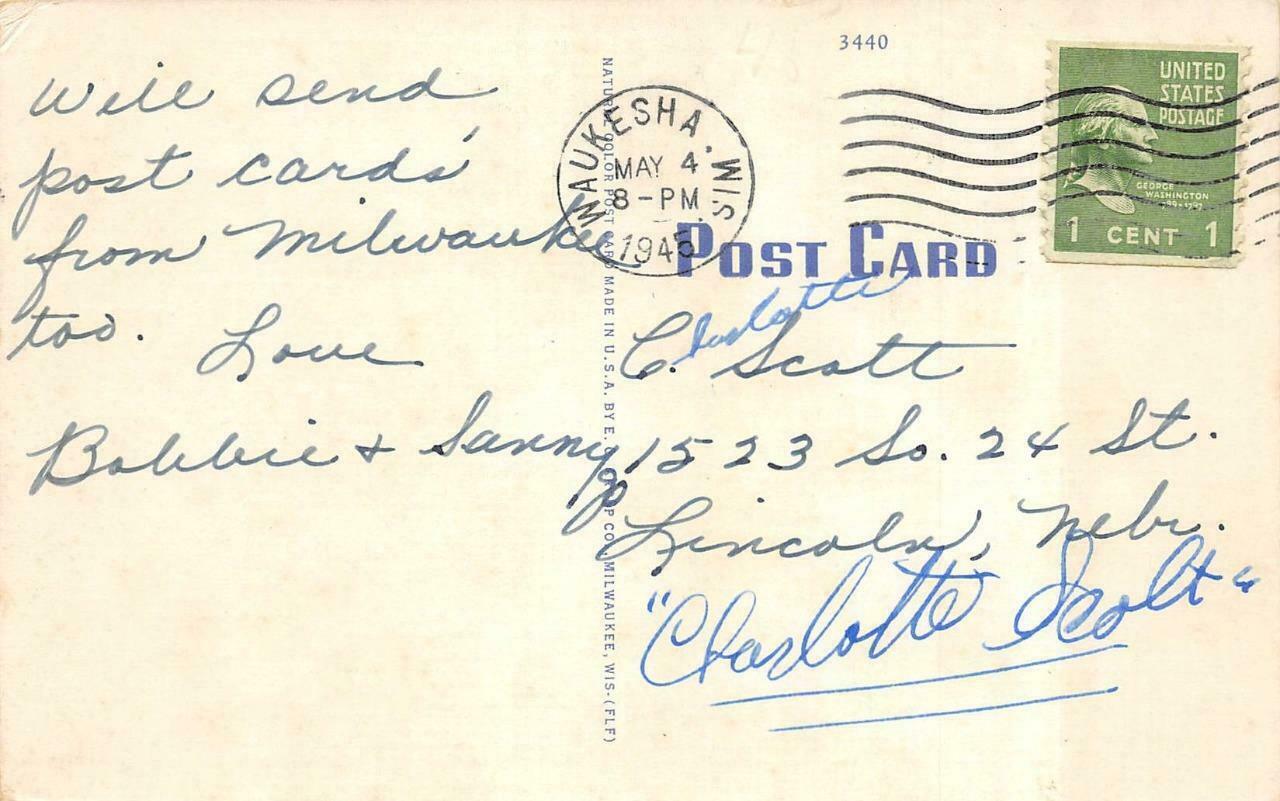 3440
UNITED
STATES
POSTAGE
GEORGE
WASHINGTON
1 CENT 1
WAUKESHA, WIS.
MAY 4
8-PM
1945
POST CARD
Will send
post cards
from Milwaukee
too. Love
Bobbie & Sanny
NATURAL COLOR POST CARD MADE IN U.S.A. BY E. C. KROPP CO. MILWAUKEE, WIS-(FLF)
Charlotte
C. Scott
1523 So. 24 St.
Lincoln, Nebr.
"Charlotte Scott"